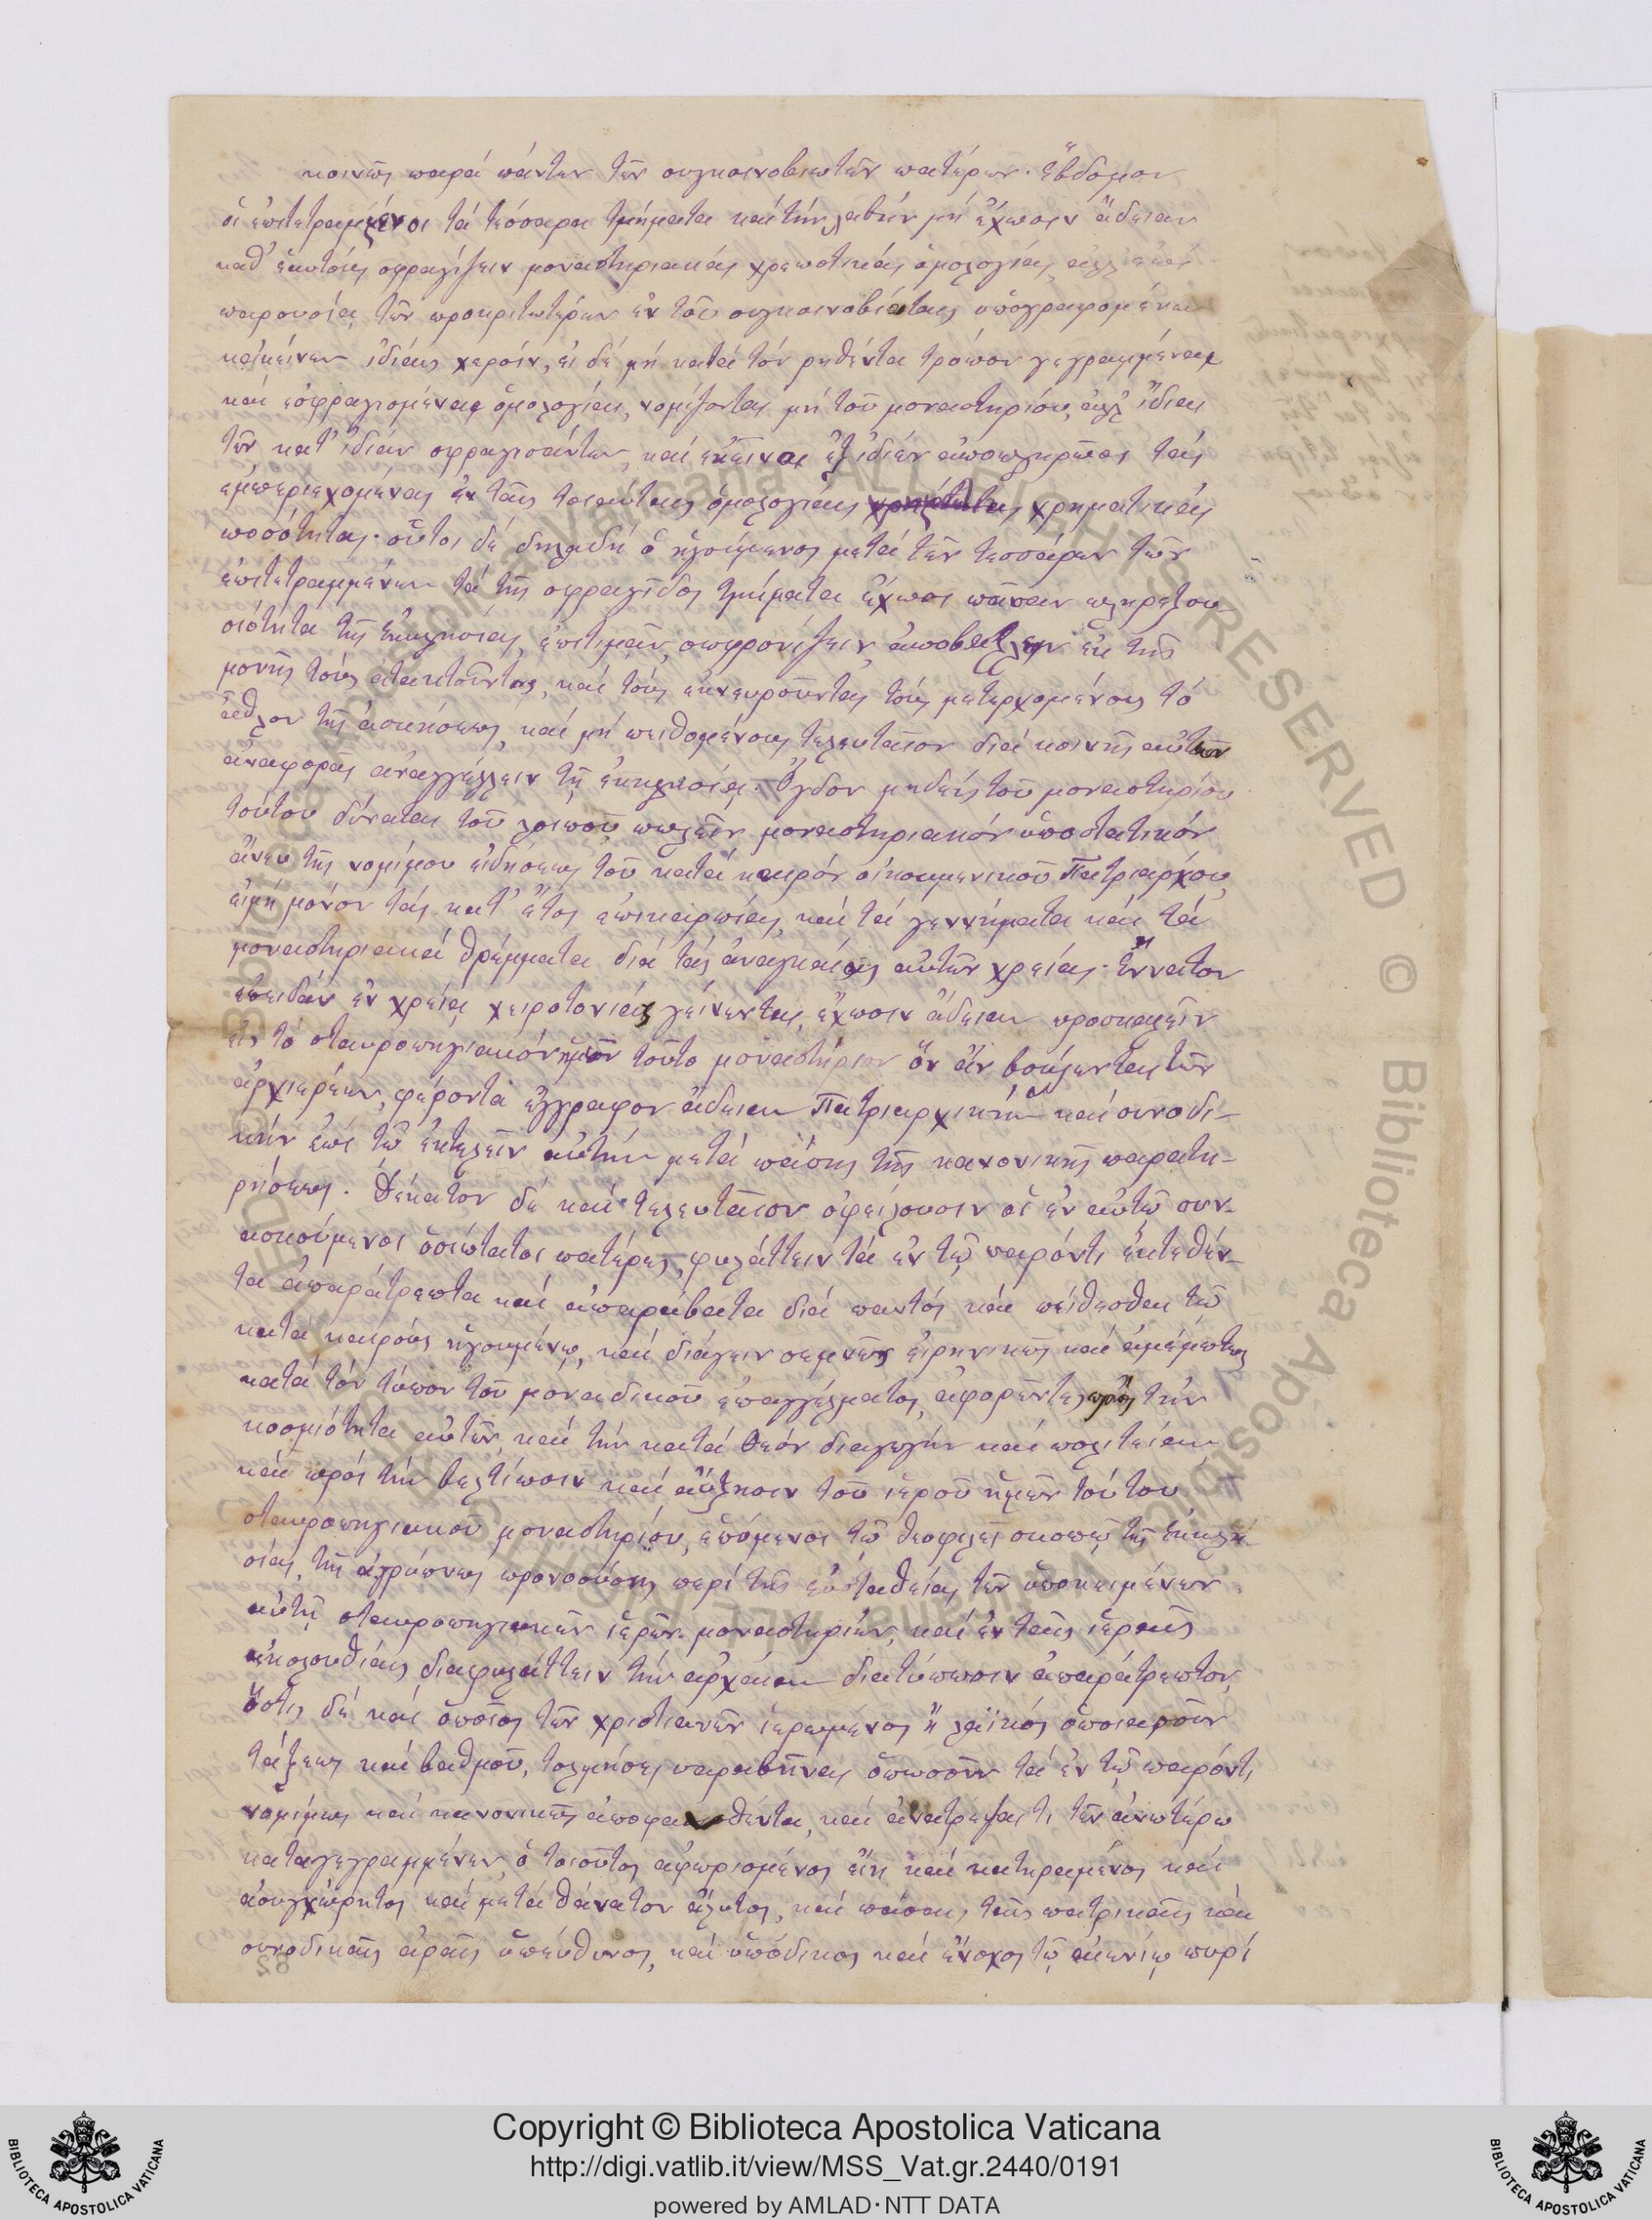 κοινῶς παρά πάντων τῶν συγκοινοβιωτῶν πατέρων. Ἕβδομον
οἱ ἐπιτετραμμένοι τά τέσσαρα τμήματα καί τήν λαβήν μή ἔχωσιν ἄδειαν
καθ' ἑαυτούς σφραγίζειν μοναστηριακάς χρεωστικάς ὁμολογίας,
παρουσίᾳ τῶν προκριτωτέρων ἐν τοῖς συγκοινοβιώταις ὑπογραφομένων
κἀκείνων ἰδίαις χερσίν, εἰ δέ μή κατά τόν ρηθέντα τρόπον γεγραμμέναι
καί ἐσφραγισμέναι ὁμολογίαι, νομίζονται μή τοῦ μοναστηρίου, ἀλλ' ἴδιαι
τῶν κατ' ἰδίαν σφραγισάντων, καί ἐκεῖνοι ἐξ ἰδίων ἀποπληρῶσι τάς
ἐμπεριεχομένας ἐν ταῖς τοιαύταις ὁμολογίαις χρηματικάς
ποσότητας· οὗτοι δέ δηλαδή ὁ ἡγούμενος μετά τῶν τεσσάρων τῶν
ἐπιτετραμμένων τά τῆς σφραγῖδος τμήματα ἔχωσι πᾶσαν πληρεξου-
σιότητα τῆς ἐκκλησίας, ἐπιτιμᾶν, σωφρονίζειν, ἀποβάλλειν ἐκ τῆς
μονῆς τούς ἀτακτοῦντας, καί τούς ἐκνευροῦντας τούς μετερχομένους τό
ἆθλον τῆς ἀσκήσεως, καί μή πειθομένους τελευταῖον διά κοινῆς αὐτῶν
ἀναφορᾶς ἀναγγέλλειν τῇ ἐκκλησίᾳ. Ὄγδον μηδείς τοῦ μοναστηρίου
τούτου δύναται τοῦ λοιποῦ πωλεῖν μοναστηριακόν ὑποστατικόν
ἄνευ τῆς νομίμου εἰδήσεως τοῦ κατά καιρόν οἰκουμενικοῦ Πατριάρχου,
εἰμή μόνον τάς κατ' ἔτος ἐπικαρπίας, καί τά γεννήματα καί τά
μοναστηριακά θρέμματα διά τάς ἀναγκαίας αὐτῶν χρείας. Ἔννατον
ἐπειδάν ἐν χρείᾳ χειροτονίας γείνωνται, ἔχωσιν ἄδειαν προσκαλεῖν
εἰς τό σταυροπηγιακόν ἡμῶν τοῦτο μοναστήριον ὅν ἄν βούλωνται τῶν
ἀρχιερέων, φέροντα ἔγγραφον ἄδειαν Πατριαρχικήν καί συνοδι-
κήν ἐπί τῷ ἐκτελεῖν αὐτήν μετά πάσης τῆς κανονικῆς παρατη-
ρήσεως. Δέκατον δέ καί τελευταῖον ὀφείλουσιν οἱ ἐν αὐτῷ συν-
ασκούμενοι ὁσιώτατοι πατέρες, φυλάττειν τά ἐν τῷ παρόντι ἐκτεθέν-
τα ἀπαράτρεπτα καί ἀπαράβατα διά παντός καί πείθεσθαι τῷ
κατά καιρούς ἡγουμένῳ, καί διάγειν σεμνῶς εἰρηνικῶς καί ἀμέμπτως
κατά τόν τύπον τοῦ μοναδικοῦ ἐπαγγέλματος, ἀφορῶντες πρός τήν
κοσμιότητα αὐτῶν, καί τήν κατά Θεόν διαγωγήν καί πολιτείαν
καί πρός τήν βελτίωσιν καί αὔξησιν τοῦ ἱεροῦ ἡμῶν τούτου
σταυροπηγιακοῦ μοναστηρίου, ἑπόμενοι τῷ θεοφιλεῖ σκοπῷ τῆς ἐκκλη-
σίας, τῆς ἀγρύπνως προνοούσης περί τῆς εὐσταθείας τῶν ὑποκειμένων
αὐτῇ σταυροπηγιακῶν ἱερῶν μοναστηρίων, καί ἐν ταῖς ἱεραῖς
ἀκολουθίαις διαφυλάττειν τήν ἀρχαίαν διατύπωσιν ἀπαράτρεπτον,
ὅστις δέ καί ὁποῖος τῶν χριστιανῶν ἱερωμένος ἤ λαϊκός ὁποιασοῦν
τάξεως καί βαθμοῦ, τολμήσει παραβῆναι ὁπωσοῦν τά ἐν τῷ παρόντι
νομίμως καί κανονικῶς ἀποφανθέντα, καί ἀνατρέψαι τι τῶν ἀνωτέρω
καταγεγραμμένων, ὁ τοιοῦτος ἀφωρισμένος εἴη καί κατηραμένος καί
ἀσυγχώρητος καί μετά θάνατον ἄλυτος, καί πάσαις ταῖς πατρικαῖς καί
συνοδικαῖς ἀραῖς ὑπεύθυνος, καί ὑπόδικος καί ἔνοχος τῷ αἰωνίῳ πυρί
Copyright © Biblioteca Apostolica Vaticana
http://digi.vatlib.it/view/MSS_Vat.gr.2440/0191
powered by AMLAD·NTT DATA